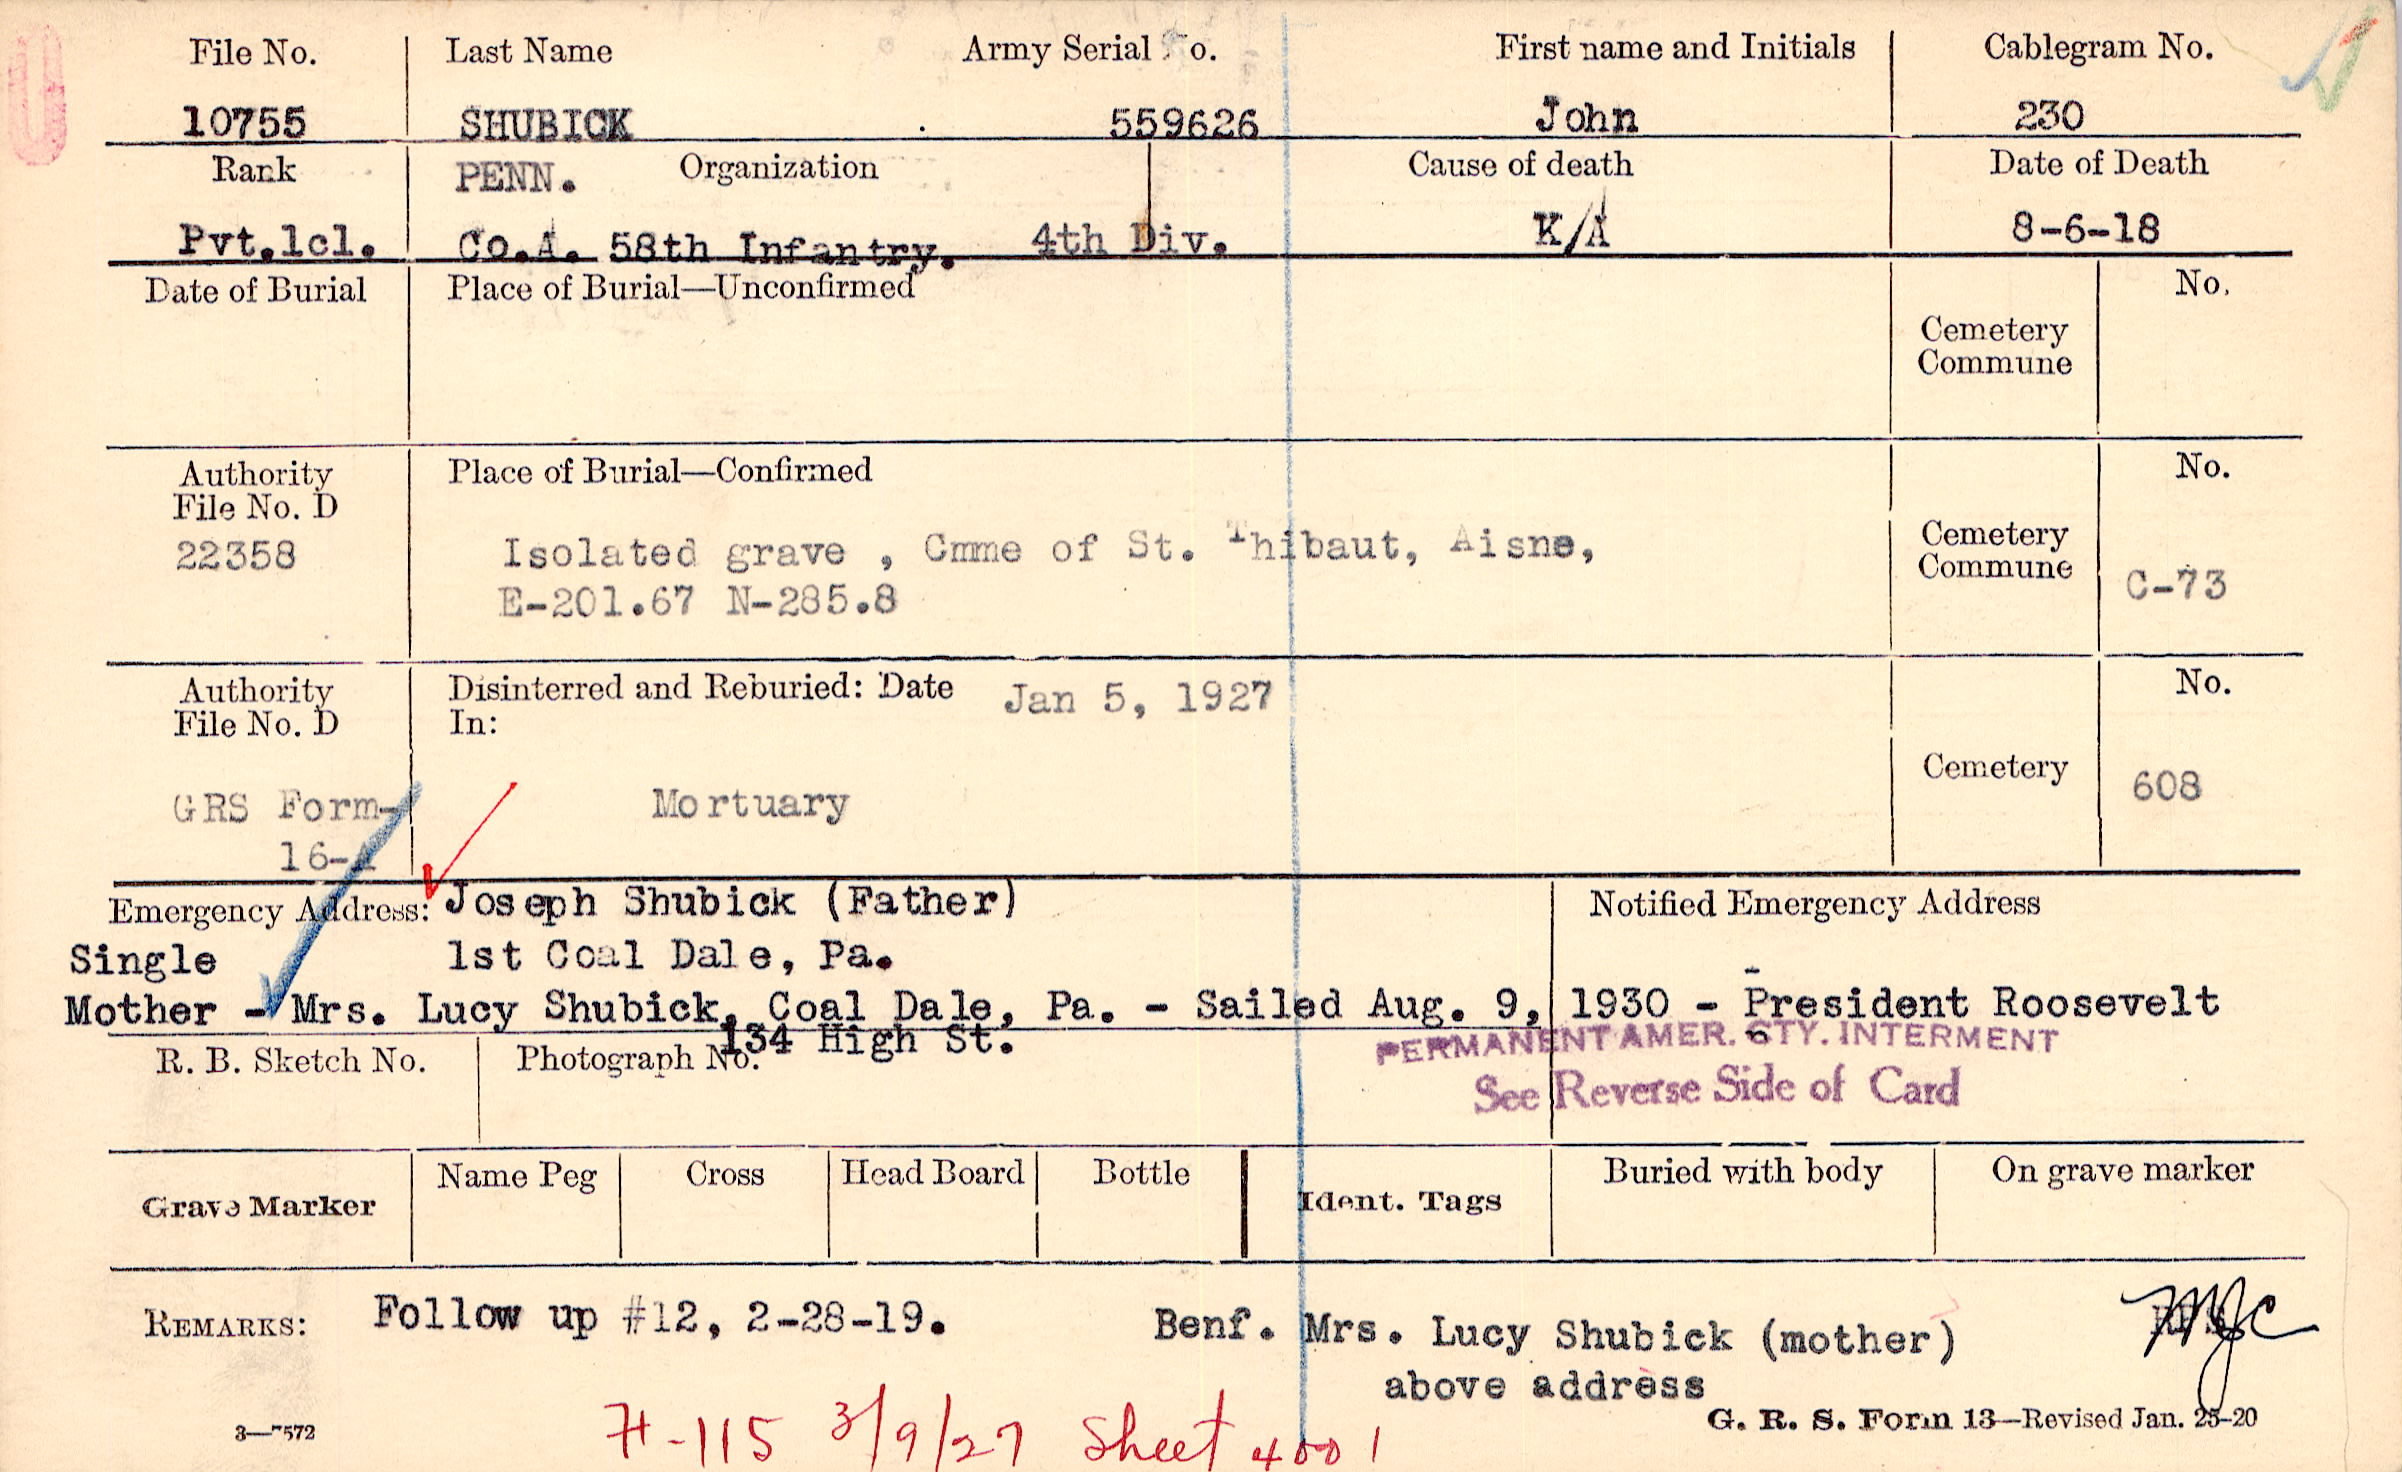 File No. Last Name Army Serial No. First name and Initials Cablegram No.
10755 SHUBICK 559626 John 230
Rank PENN. Organization Cause of death Date of Death
Pvt.1cl. Co.A. 58th Infantry. 4th Div. K/A 8-6-18
Date of Burial Place of Burial—Unconfirmed No.
Cemetery
Commune
Authority Place of Burial—Confirmed No.
File No. D
22358 Isolated grave , Cmme of St. Thibaut, Aisne, Cemetery
Commune
E-201.67 N-285.8 C-73
Authority Disinterred and Reburied: Date Jan 5, 1927 No.
File No. D In:
Cemetery 608
GRS Form- Mortuary
16-A
Emergency Address: Joseph Shubick (Father) Notified Emergency Address
Single 1st Coal Dale, Pa.
Mother - Mrs. Lucy Shubick, Coal Dale, Pa. - Sailed Aug. 9, 1930 - President Roosevelt
134 High St.
PERMANENT AMER. CTY. INTERMENT
R. B. Sketch No. Photograph No.
See Reverse Side of Card
Grave Marker Name Peg Cross Head Board Bottle Ident. Tags Buried with body On grave marker
REMARKS: Follow up #12, 2-28-19. Benf. Mrs. Lucy Shubick (mother) MJC
above address
3—7572 G. R. S. Form 13—Revised Jan. 25-20
H-115 3/9/27 Sheet 4001